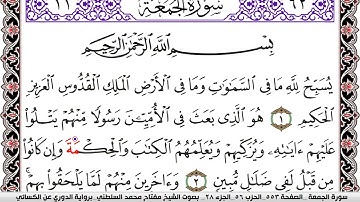 ٦٢ سُورَةُ الْجُمُعَةِ ١١
بِسْمِ اللَّهِ الرَّحْمَٰنِ الرَّحِيمِ
يُسَبِّحُ لِلَّهِ مَا فِي السَّمَٰوَٰتِ وَمَا فِي الْأَرْضِ الْمَلِكِ الْقُدُّوسِ الْعَزِيزِ
الْحَكِيمِ ١ هُوَ الَّذِي بَعَثَ فِي الْأُمِّيِّينَ رَسُولًا مِّنْهُمْ يَتْلُوا
عَلَيْهِمْ ءَايَٰتِهِ وَيُزَكِّيهِمْ وَيُعَلِّمُهُمُ الْكِتَٰبَ وَالْحِكْمَةَ وَإِن كَانُوا
مِن قَبْلُ لَفِي ضَلَٰلٍ مُّبِينٍ ٢ وَءَاخَرِينَ مِنْهُمْ لَمَّا يَلْحَقُوا بِهِمْ
سورة الجمعة - الصفحة ٥٥٣ - الحزب ٥٦ - الجزء ٢٨ - بصوت الشيخ مفتاح محمد السلطني - برواية الدوري عن الكسائي